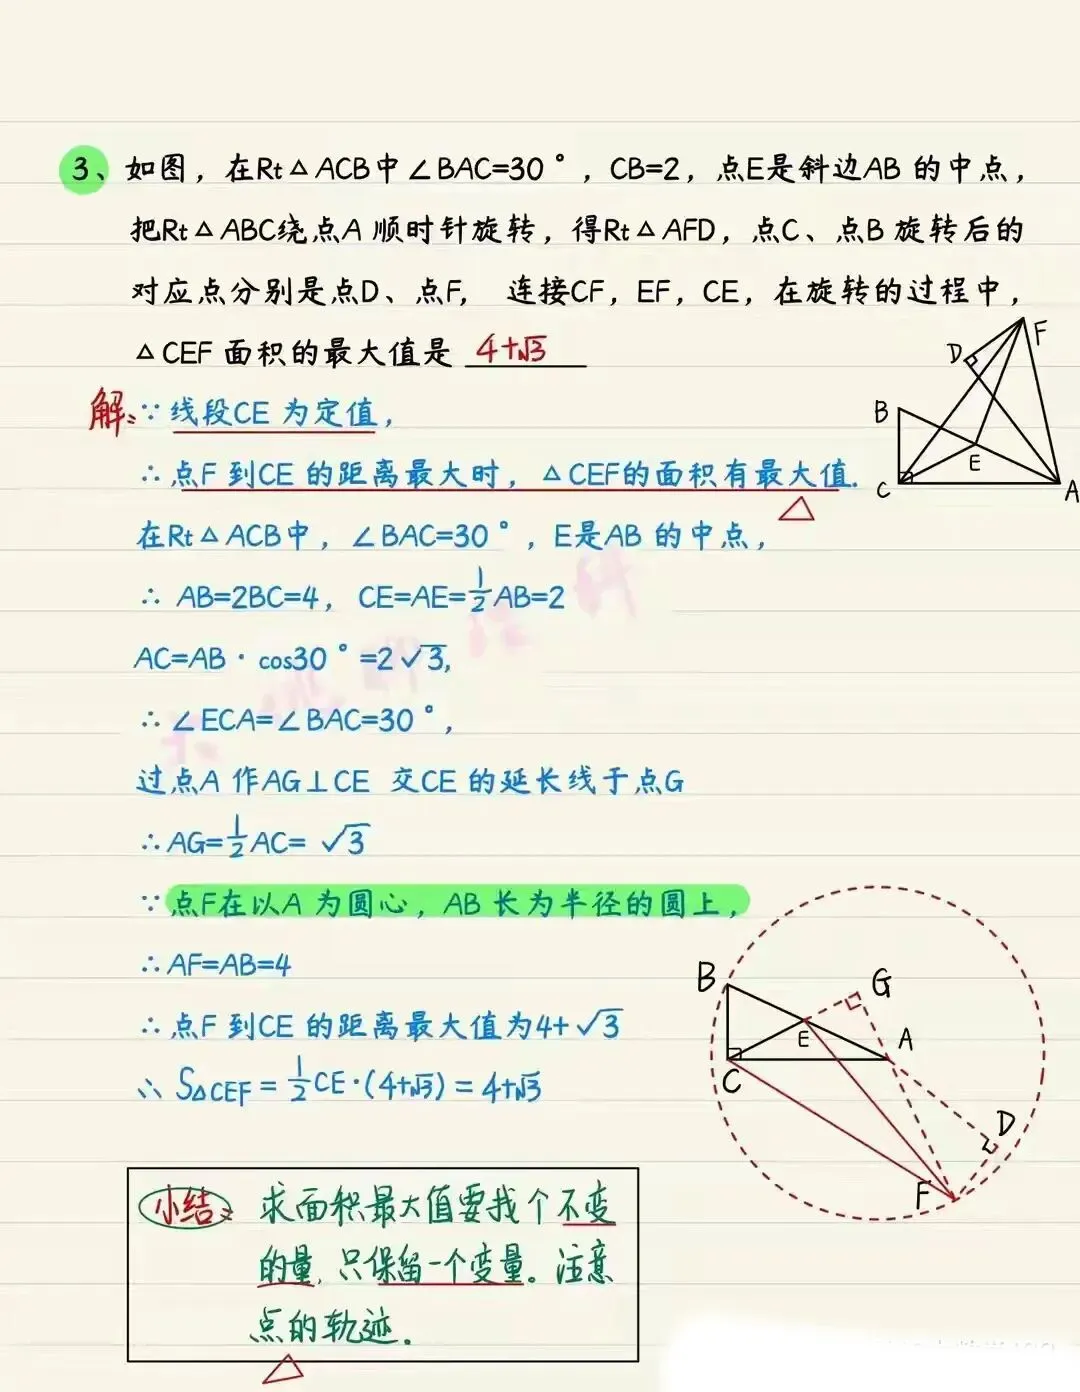 3、如图，在Rt△ACB中∠BAC=30°，CB=2，点E是斜边AB的中点，
把Rt△ABC绕点A顺时针旋转，得Rt△AFD，点C、点B旋转后的
对应点分别是点D、点F，连接CF，EF，CE，在旋转的过程中，
△CEF面积的最大值是 4+√3
F
D
B
E
C
A
解：∵线段CE为定值，
∴点F到CE的距离最大时，△CEF的面积有最大值.
在Rt△ACB中，∠BAC=30°，E是AB的中点，
∴ AB=2BC=4，CE=AE=1/2AB=2
AC=AB·cos30°=2√3,
∴∠ECA=∠BAC=30°,
过点A作AG⊥CE 交CE的延长线于点G
∴AG=1/2AC=√3
∵点F在以A为圆心，AB长为半径的圆上，
∴AF=AB=4
∴点F到CE的距离最大值为4+√3
∴ S△CEF=1/2CE·(4+√3)=4+√3
B
G
E
A
C
D
F
小结：求面积最大值要找个不变
的量，只保留一个变量。注意
点的轨迹．